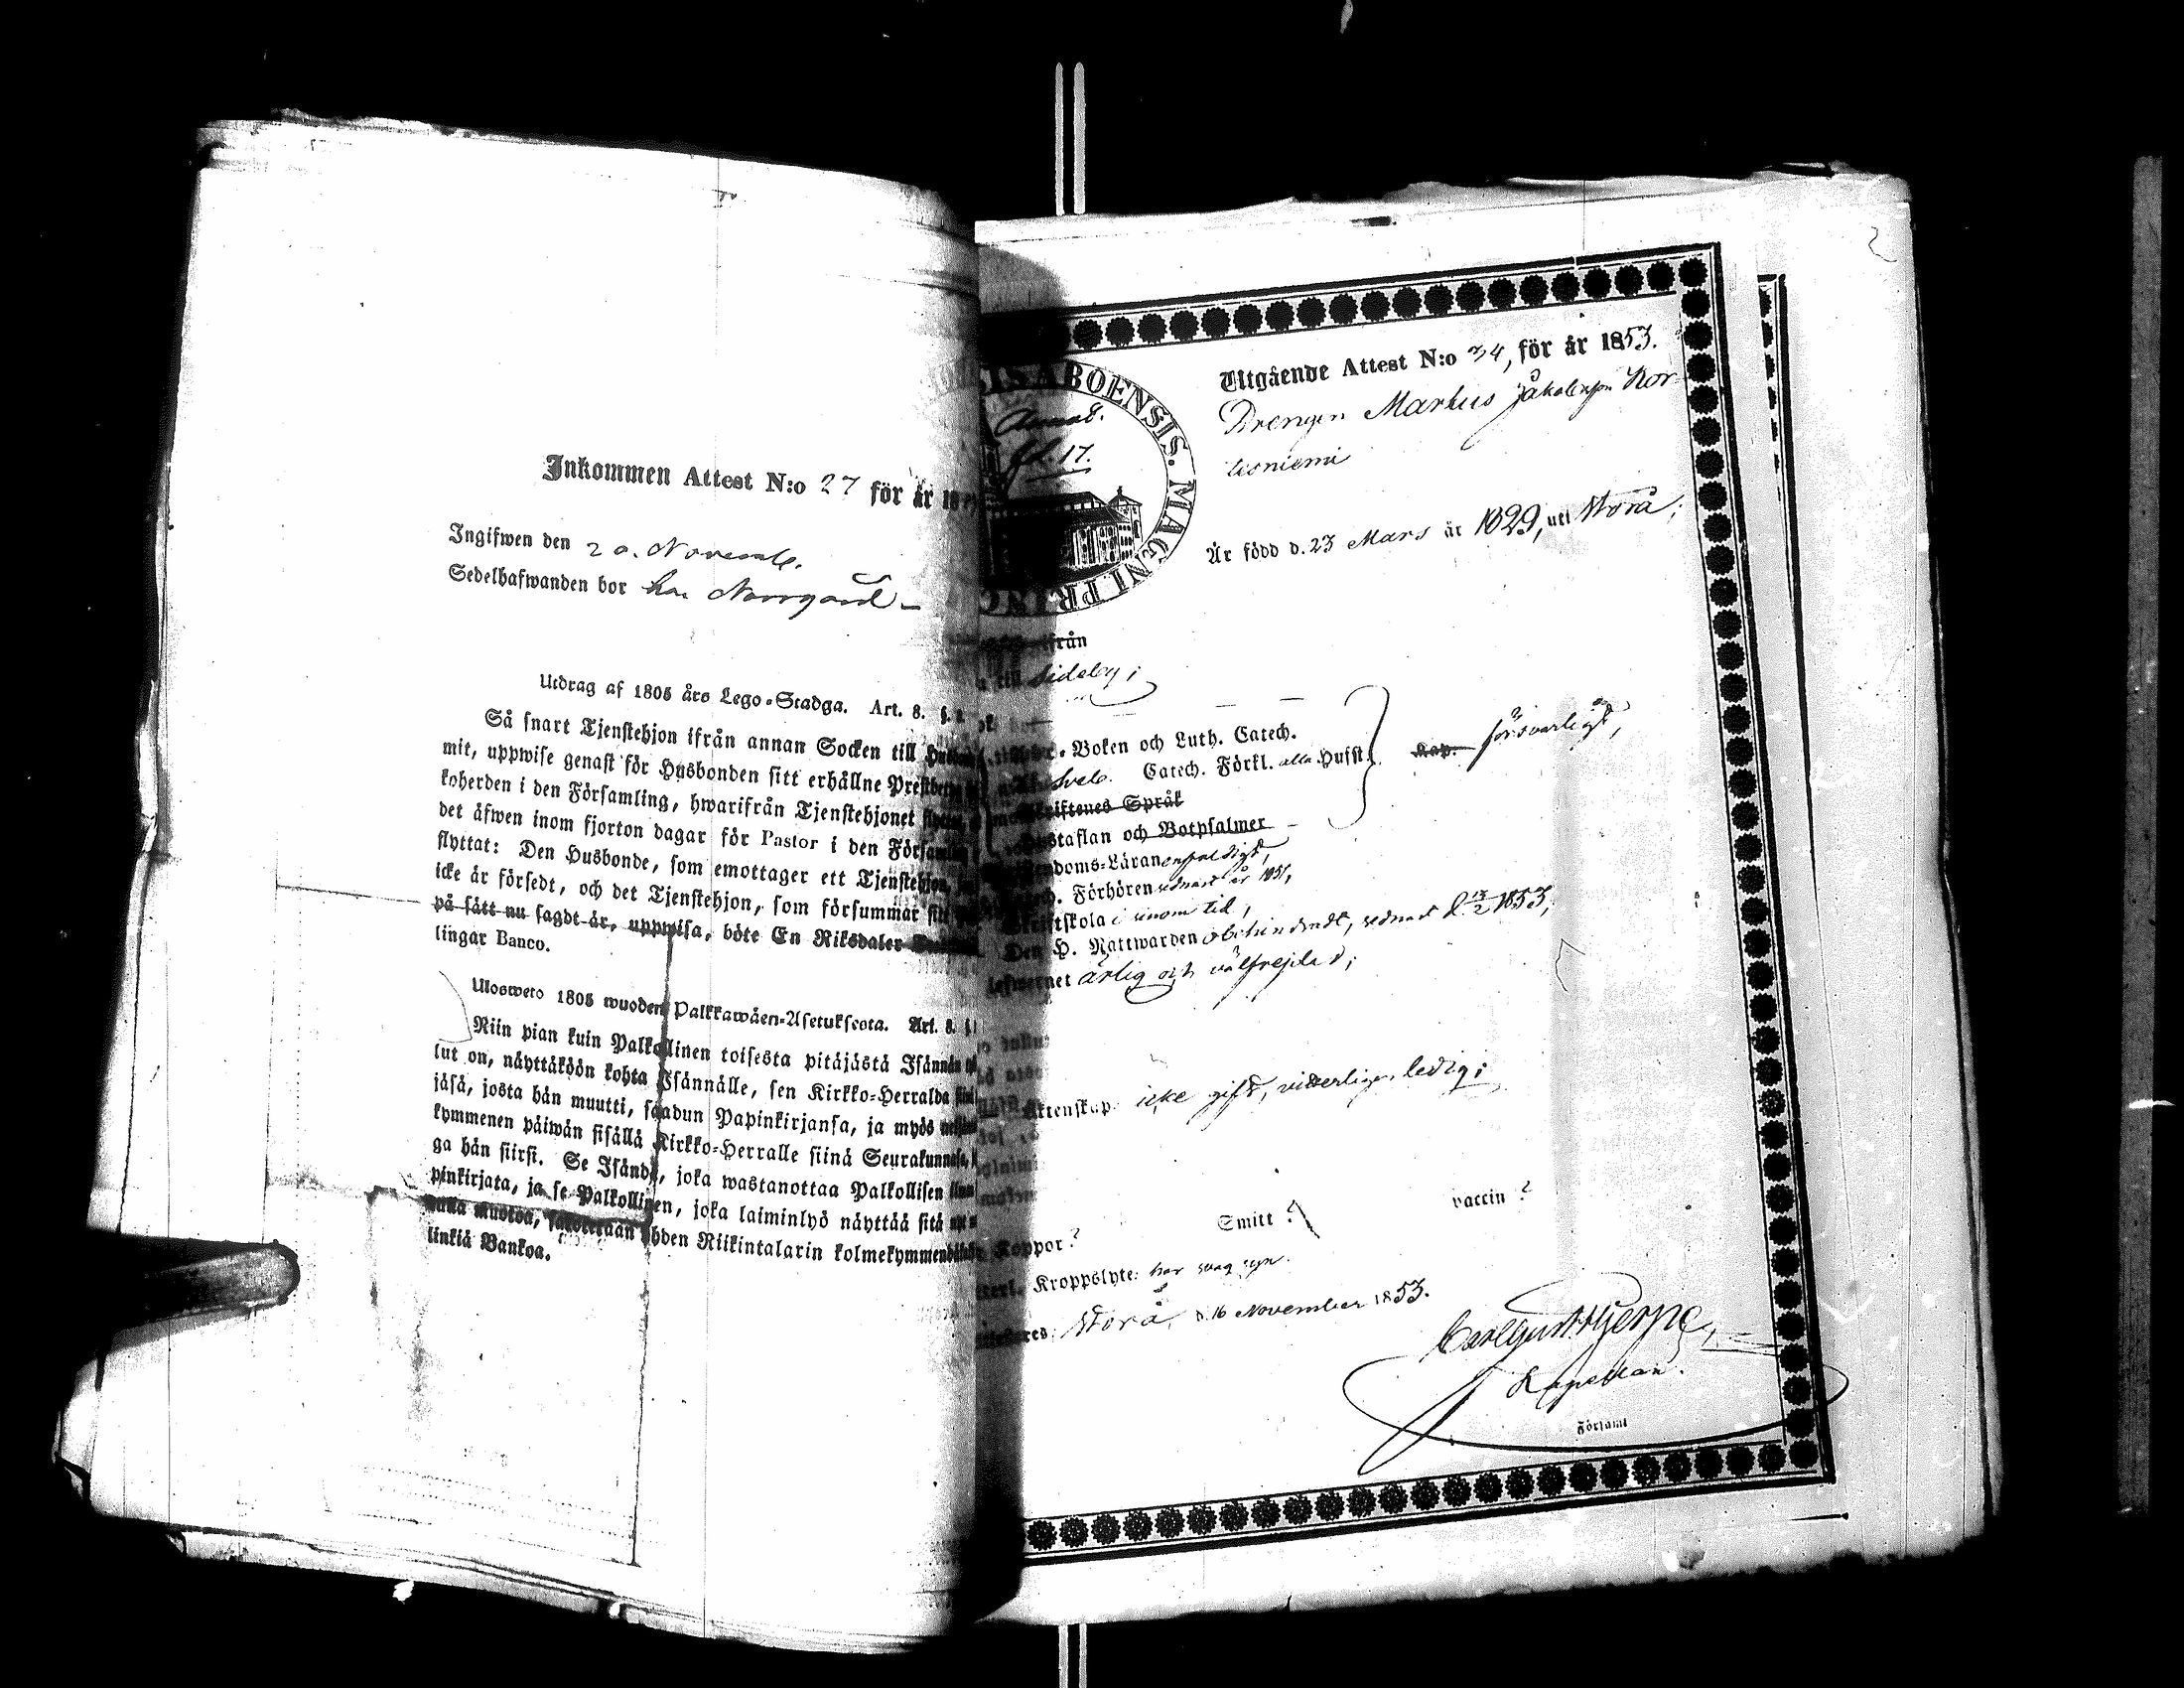 Inkommen Attest N:o 27 för år 18
Ingifwen den 20. Novemb.
Sedelhafwanden bor hos Norrgård
Utdrag af 1805 års Lego-Stadga. Art. 8. §.
Så snart Tjenstehjon ifrån annan Socken till
mit, uppwise genast för Husbonden sitt erhållne
koherden i den Församling, hwarifrån Tjenstehjonet
det äfwen inom fjorton dagar för Pastor i den
flyttat: Den Husbonde, som emottager ett
icke är försedt, och det Tjenstehjon, som försummar
på sätt nu sagdt är, uppwisa, böte En Riksdaler
lingar Banco.
Ulosweto 1805 wuoden Palkkawäen-Asetuksesta. Art. 8. §.
Niin pian kuin Palkollinen toisesta pitäjästä Isännän
lut on, näyttäköön kohta Isännälle, sen Kirkko-Herralda
jäsä, josta hän muutti, saadun Papinkirjansa, ja myös
kymmenen päiwän sisällä Kirkko-Herralle siinä Seurakunnasa,
ga hän siirsi. Se Isändä, joka wastanottaa Palkollisen
pinkirjata, ja se Palkollinen, joka laiminlyö näyttää sitä
muotoa, yhden Riikintalarin
linkiä Bankoa.
SIS ABOENSIS. MAGNI PRI
fol. 17.
Utgående Attest N:o 34, för år 1853.
Drengen Markus Jakobsson Kor-
tesniemi
Är född d. 23 Mars år 1829, uti Storå;
ifrån
till Sideby;
Boken och Luth. Catech.
Sveb. Catech. Förkl. alla Husst. försvarligt,
Skriftenes Språk
Hustaflan och Botpsalmer
doms-Läran enfaldigt,
Förhören sednast år 1851,
Skriftskola i sinom tid,
Den H. Nattwarden obehindradt, sednast d. 13/2 1853,
lefwernet ärlig och välfrejdad;
Äktenskap: icke gift, vitterligen ledig;
Koppor? Smitt? vaccin?
Kroppslyte: har svag syn.
Storå, d. 16 November 1853.
Carl Gust. Hjerpe,
Kapellan.
Församl